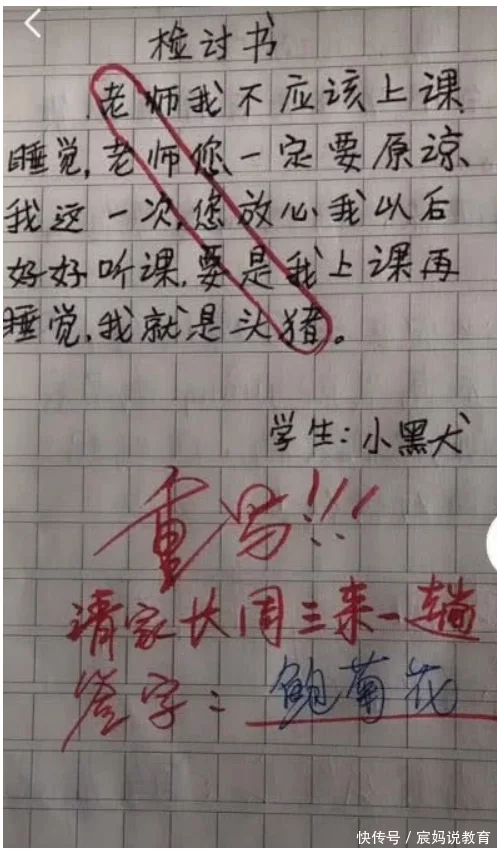 检讨书
老师我不应该上课
睡觉,老师您一定要原谅
我这一次,您放心我以后
好好听课,要是我上课再
睡觉,我就是头猪。
学生:小黑犬
重写!!!
请家长周三来一趟
签字:鲍菊花
快传号/宸妈说教育